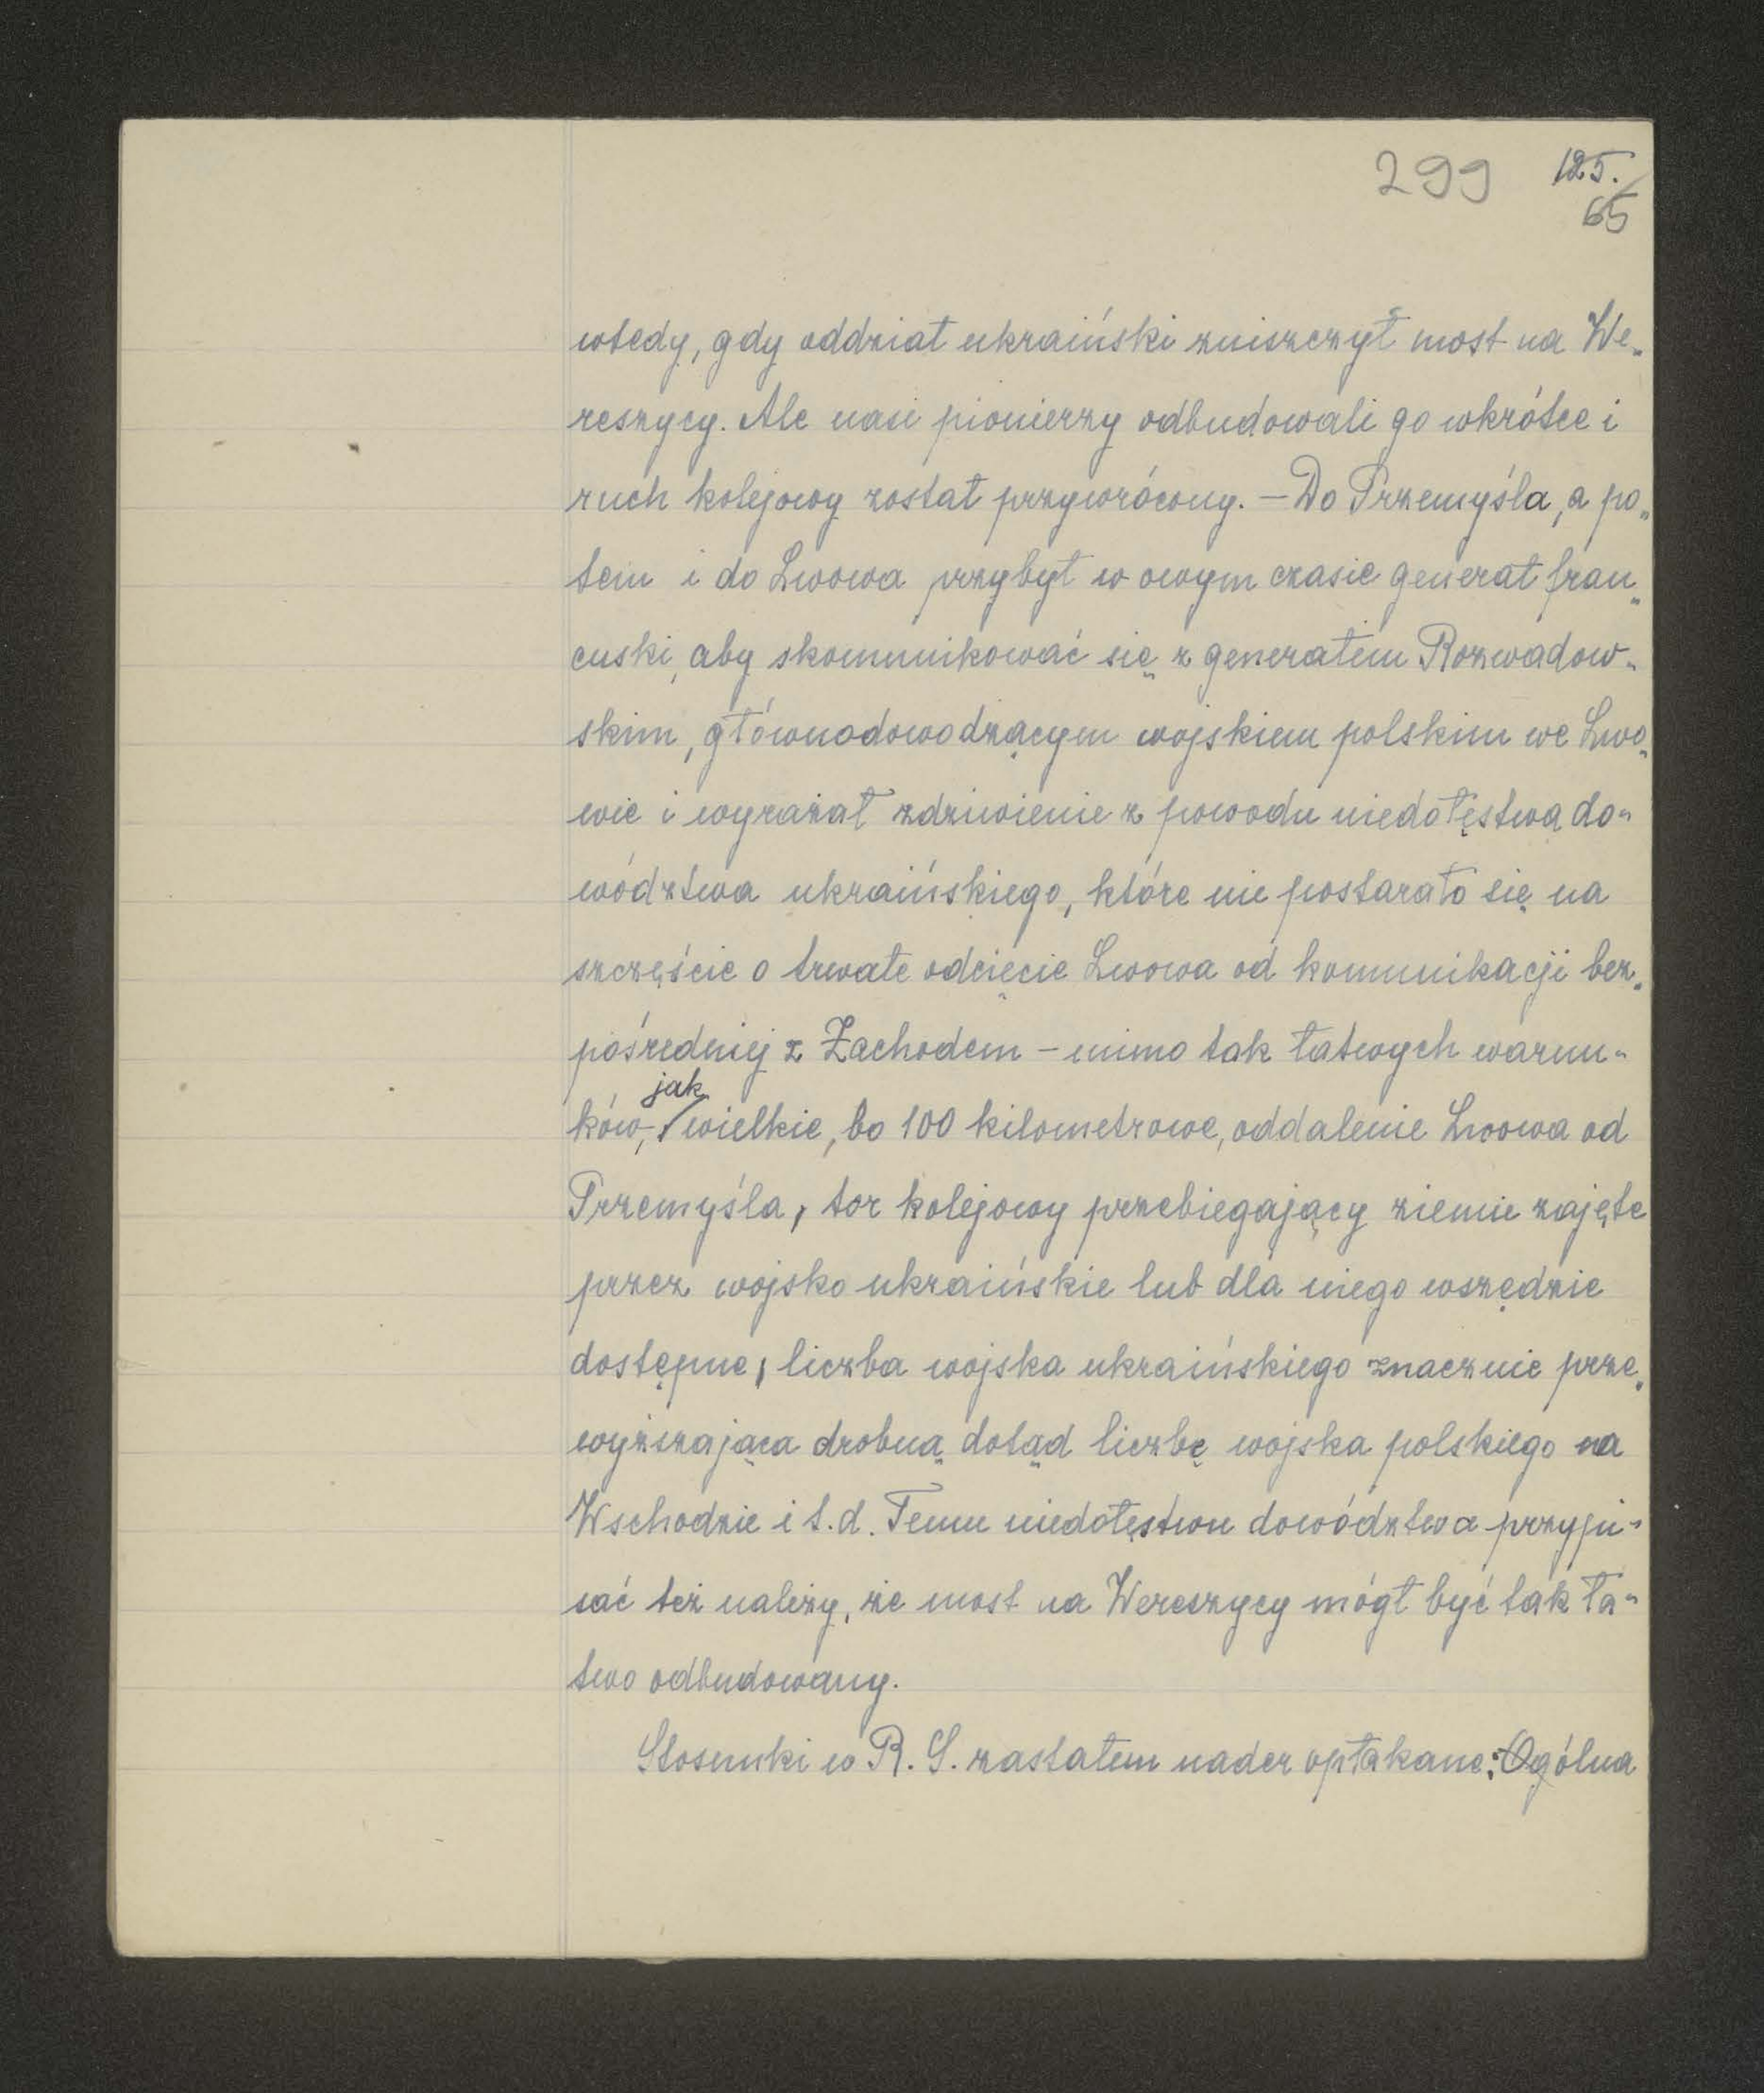 299 125.
65
wtedy, gdy oddział ukraiński zniszczył most na We„
reszycy. Ale nasi pionierzy odbudowali go wkrótce i
ruch kolejowy został przywrócony. — Do Przemyśla, a po„
tem i do Lwowa przybył w owym czasie generał fran„
cuski, aby skomunikować się z generałem Rozwadow„
skim, głównodowodzącym wojskiem polskim we Lwo„
wie i wyrażał zdziwienie z powodu niedołęstwa do„
wództwa ukraińskiego, które nie postarało się na
szczęście o trwałe odcięcie Lwowa od komunikacji bez„
pośredniej z Zachodem – mimo tak łatwych warun„
jak
ków, wielkie, bo 100 kilometrowe, oddalenie Lwowa od
Przemyśla, tor kolejowy przebiegający ziemie zajęte
przez wojsko ukraińskie lub dla niego wszędzie
dostępne, liczba wojska ukraińskiego znacznie prze„
wyższająca drobną dotąd liczbę wojska polskiego na
Wschodzie i t.d. Temu niedołęstwu dowództwa przypi„
sać też należy, że most na Wereszycy mógł być tak ła„
two odbudowany.
Stosunki w R. S. zastałem nader opłakane: Ogólna